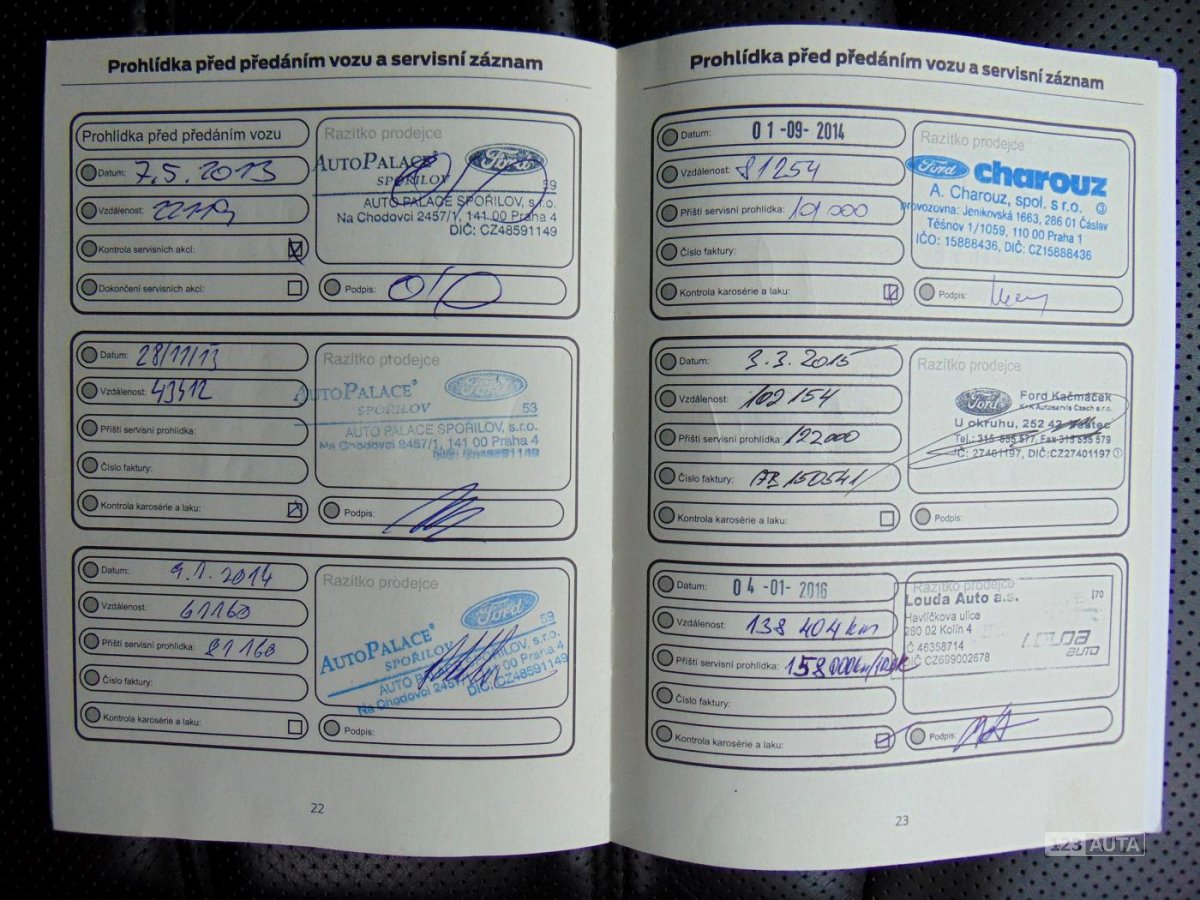 Prohlídka před předáním vozu a servisní záznam
Prohlídka před předáním vozu
Datum: 7.5.2013
Vzdálenost:
Kontrola servisních akcí:
Dokončení servisních akcí:
Razítko prodejce
AUTO PALACE®
SPOŘILOV
Ford
59
AUTO PALACE SPOŘILOV, s.r.o.
Na Chodovci 2457/1, 141 00 Praha 4
DIČ: CZ48591149
Podpis:
Datum: 28/11/13
Vzdálenost: 43412
Příští servisní prohlídka:
Číslo faktury:
Kontrola karosérie a laku:
Razítko prodejce
AUTO PALACE®
SPOŘILOV
Ford
53
AUTO PALACE SPOŘILOV, s.r.o.
Na Chodovci 2457/1, 141 00 Praha 4
DIČ: CZ48591149
Podpis:
Datum: 9.1.2014
Vzdálenost: 61160
Příští servisní prohlídka: 81160
Číslo faktury:
Kontrola karosérie a laku:
Razítko prodejce
AUTO PALACE®
SPOŘILOV
Ford
59
AUTO PALACE SPOŘILOV, s.r.o.
Na Chodovci 2457/1, 141 00 Praha 4
DIČ: CZ48591149
Podpis:
22
Prohlídka před předáním vozu a servisní záznam
Datum: 01-09-2014
Vzdálenost: 81254
Příští servisní prohlídka: 101 000
Číslo faktury:
Kontrola karosérie a laku:
Razítko prodejce
Ford charouz
A. Charouz, spol. s r.o. ③
provozovna: Jeníkovská 1663, 286 01 Čáslav
Těšnov 1/1059, 110 00 Praha 1
IČO: 15888436, DIČ: CZ15888436
Podpis:
Datum: 3.3.2015
Vzdálenost: 102154
Příští servisní prohlídka: 122000
Číslo faktury: 150541
Kontrola karosérie a laku:
Razítko prodejce
Ford
Ford Kačmáček
K+K Autoservis Czech s.r.o.
U okruhu, 252 42
Tel.: 315 555 577, Fax 315 555 579
IČ: 27401197, DIČ:CZ27401197 ①
Podpis:
Datum: 04-01-2016
Vzdálenost: 138 404 km
Příští servisní prohlídka: 158 000km/1rok
Číslo faktury:
Kontrola karosérie a laku:
Razítko prodejce
Louda Auto a.s.
170
Havlíčkova ulice
280 02 Kolín 4
IČ 46358714
DIČ CZ699002678
LOUDA
AUTO
Podpis:
23
123 AUTA